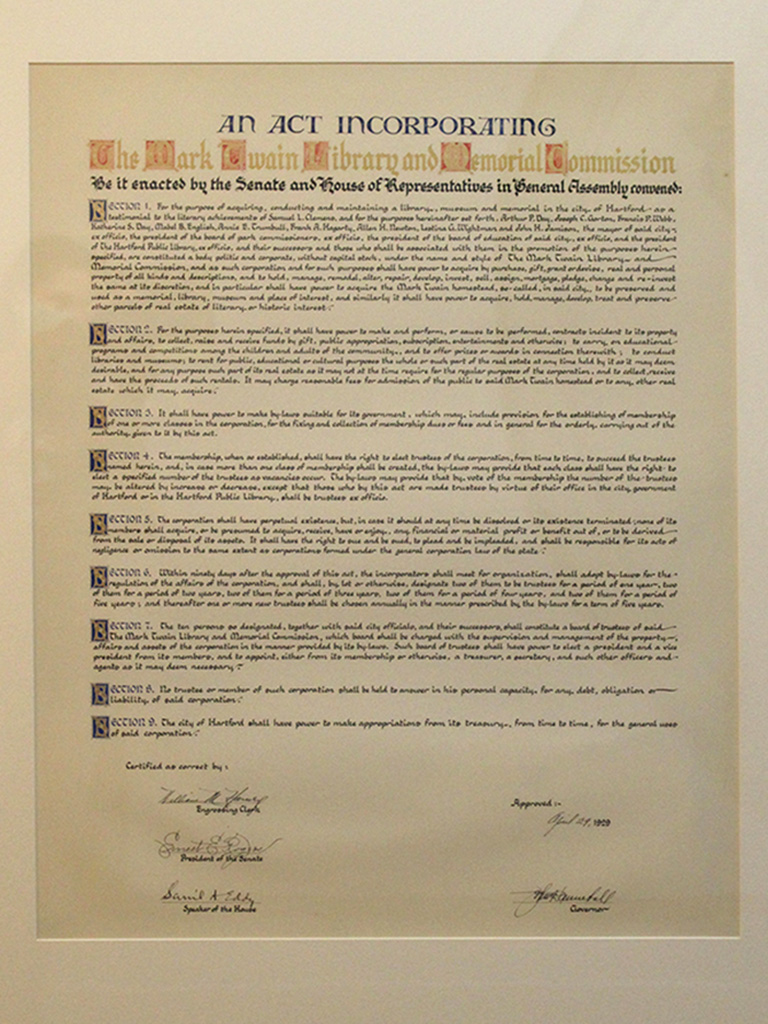 AN ACT INCORPORATING
The Mark Twain Library and Memorial Commission
Be it enacted by the Senate and House of Representatives in General Assembly convened:
SECTION 1. For the purpose of acquiring, conducting and maintaining a library, museum and memorial in the city of Hartford as a
testimonial to the literary achievements of Samuel L. Clemens, and for the purposes hereinafter set forth, Arthur P. Day, Joseph C. Gorton, Francis P. Webb,
Katharine S. Day, Mabel B. English, Annie E. Trumbull, Frank A. Hagarty, Allen H. Newton, H. Wightman and John H. Jamison, the mayor of said city,
ex officio, the president of the board of park commissioners, ex officio, the president of the board of education of said city, ex officio, and the president
of The Hartford Public library, ex officio, and their successors and those who shall be associated with them in the promotion of the purposes herein
specified, are constituted a body politic and corporate, without capital stock, under the name and style of The Mark Twain Library and
Memorial Commission, and as such corporation and for such purposes shall have power to acquire by purchase, gift, grant or devise, real and personal
property of all kinds and descriptions, and to hold, manage, remodel, alter, repair, develop, invest, sell, assign, mortgage, pledge, change and re-invest
the same at its discretion, and in particular shall have power to acquire the Mark Twain homestead, so-called, in said city, to be preserved and
used as a memorial, library, museum and place of interest, and similarly it shall have power to acquire, hold, manage, develop, treat and preserve
other parcels of real estate of literary, or historic interest:
SECTION 2. For the purposes herein specified, it shall have power to make and perform, or causes to be performed, contracts incident to its property
and affairs, to collect, raise and receive funds by gift, public appropriation, subscription, entertainments and otherwise; to carry, on educational
programs and competitions among the children and adults of the community, and to offer prizes or awards in connection therewith; to conduct
libraries and museums; to rent for public, educational or cultural purposes the whole or such part of the real estate at any time held by it as it may deem
desirable, and for any purpose such part of its real estate as it may not at the time require for the regular purposes of the corporation, and to collect, receive
and have the proceeds of such rentals. It may charge reasonable fees for admission of the public to said Mark Twain homestead or to any, other real
estate which it may, acquire.
SECTION 3. It shall have power to make by-laws suitable for its government, which may, include provision for the establishing of membership
of one or more classes in the corporation, for the fixing and collection of membership dues or fees and in general for the orderly, carrying out of the
authority, given to it by this act.
SECTION 4. The membership, when so established, shall have the right to elect trustees of the corporation, from time to time, to succeed the trustees
named herein, and, in case more than one class of membership shall be created, the by-laws may provide that each class shall have the right to
elect a specified number of the trustees as vacancies occur. The by-laws may provide that by, vote of the membership the number of the trustees
may be altered by increase or decrease, except that those who by this act are made trustees by virtue of their office in the city, government
of Hartford or in the Hartford Public Library, shall be trustees ex officio.
SECTION 5. The corporation shall have perpetual existence, but, in case it should at any time be dissolved or its existence terminated, none of its
members shall acquire, or be presumed to acquire, receive, have or enjoy, any financial or material profit or benefit out of, or to be derived
from the sale or disposal of its assets. It shall have the right to sue and be sued, to plead and be impleaded, and shall be responsible for its acts of
negligence or omission to the same extent as corporations formed under the general corporation law of the state:
SECTION 6. Within ninety days after the approval of this act, the incorporators shall meet for organization, shall adopt by-laws for the
regulation of the affairs of the corporation, and shall, by lot or otherwise, designate two of them to be trustees for a period of one year, two
of them for a period of two years, two of them for a period of three years, two of them for a period of four years, and two of them for a period of
five years; and thereafter one or more new trustees shall be chosen annually in the manner prescribed by the by-laws for a term of five years.
SECTION 7. The ten persons so designated, together with said city officials, and their successors, shall constitute a board of trustees of said
The Mark Twain Library and Memorial Commission, which board shall be charged with the supervision and management of the property,
affairs and assets of the corporation in the manner provided by its by-laws. Such board of trustees shall have power to elect a president and a vice
president from its members, and to appoint, either from its membership or otherwise, a treasurer, a secretary, and such other officers and
agents as it may deem necessary:
SECTION 8. No trustee or member of such corporation shall be held to answer in his personal capacity, for any, debt, obligation or
liability, of said corporation:
SECTION 9. The city of Hartford shall have power to make appropriations from its treasury, from time to time, for the general uses
of said corporation:
Certified as correct by:
William
Engrossing Clerk
Approved:-
April 29, 1929
Ernest E. Rogers
President of the Senate
Samil A Eddy
Speaker of the House
Jno H Trumbull
Governor